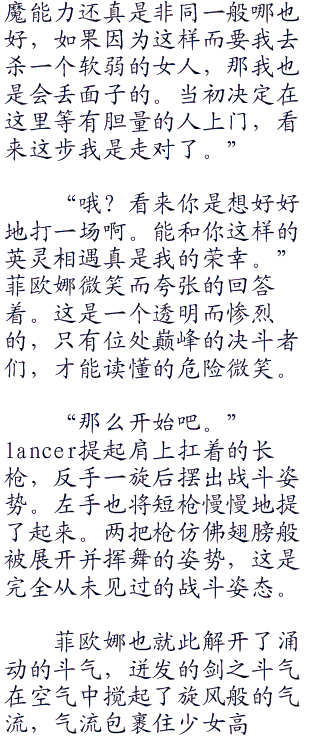 魔能力还真是非同一般哪也
好，如果因为这样而要我去
杀一个软弱的女人，那我也
是会丢面子的。当初决定在
这里等有胆量的人上门，看
来这步我是走对了。”
“哦？看来你是想好好
地打一场啊。能和你这样的
英灵相遇真是我的荣幸。”
菲欧娜微笑而夸张的回答
着。这是一个透明而惨烈
的，只有位处巅峰的决斗者
们，才能读懂的危险微笑。
“那么开始吧。”
lancer提起肩上扛着的长
枪，反手一旋后摆出战斗姿
势。左手也将短枪慢慢地提
了起来。两把枪仿佛翅膀般
被展开并挥舞的姿势，这是
完全从未见过的战斗姿态。
菲欧娜也就此解开了涌
动的斗气，迸发的剑之斗气
在空气中搅起了旋风般的气
流，气流包裹住少女高